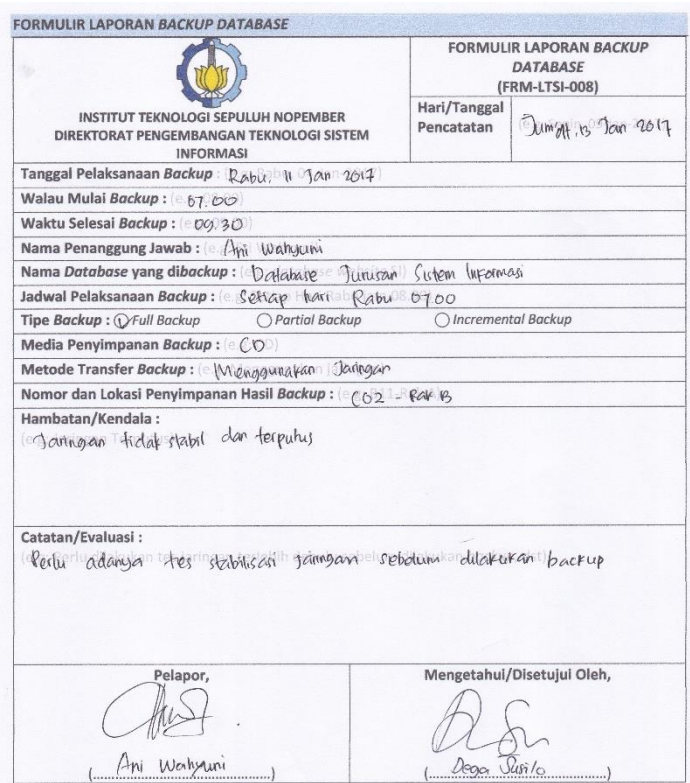 FORMULIR LAPORAN BACKUP DATABASE
INSTITUT TEKNOLOGI SEPULUH NOPEMBER
DIREKTORAT PENGEMBANGAN TEKNOLOGI SISTEM
INFORMASI
FORMULIR LAPORAN BACKUP
DATABASE
(FRM-LTSI-008)
Hari/Tanggal
Pencatatan
Jum'at, 13 Jan 2017
Tanggal Pelaksanaan Backup : Rabu, 11 Jan 2017
Walau Mulai Backup : 07.00
Waktu Selesai Backup : 09.30
Nama Penanggung Jawab : Ani Wahyuni
Nama Database yang dibackup : Database Jurusan Sistem Informasi
Jadwal Pelaksanaan Backup : Setiap hari Rabu 07.00
Tipe Backup : Full Backup Partial Backup Incremental Backup
Media Penyimpanan Backup : CD
Metode Transfer Backup : Menggunakan Jaringan
Nomor dan Lokasi Penyimpanan Hasil Backup : C02 - Rak B
Hambatan/Kendala :
Jaringan tidak stabil dan terputus
Catatan/Evaluasi :
Perlu adanya tes stabilisasi jaringan sebelum dilakukan backup
Pelapor,
(Ani Wahyuni)
Mengetahui/Disetujui Oleh,
(Dega Susilo)